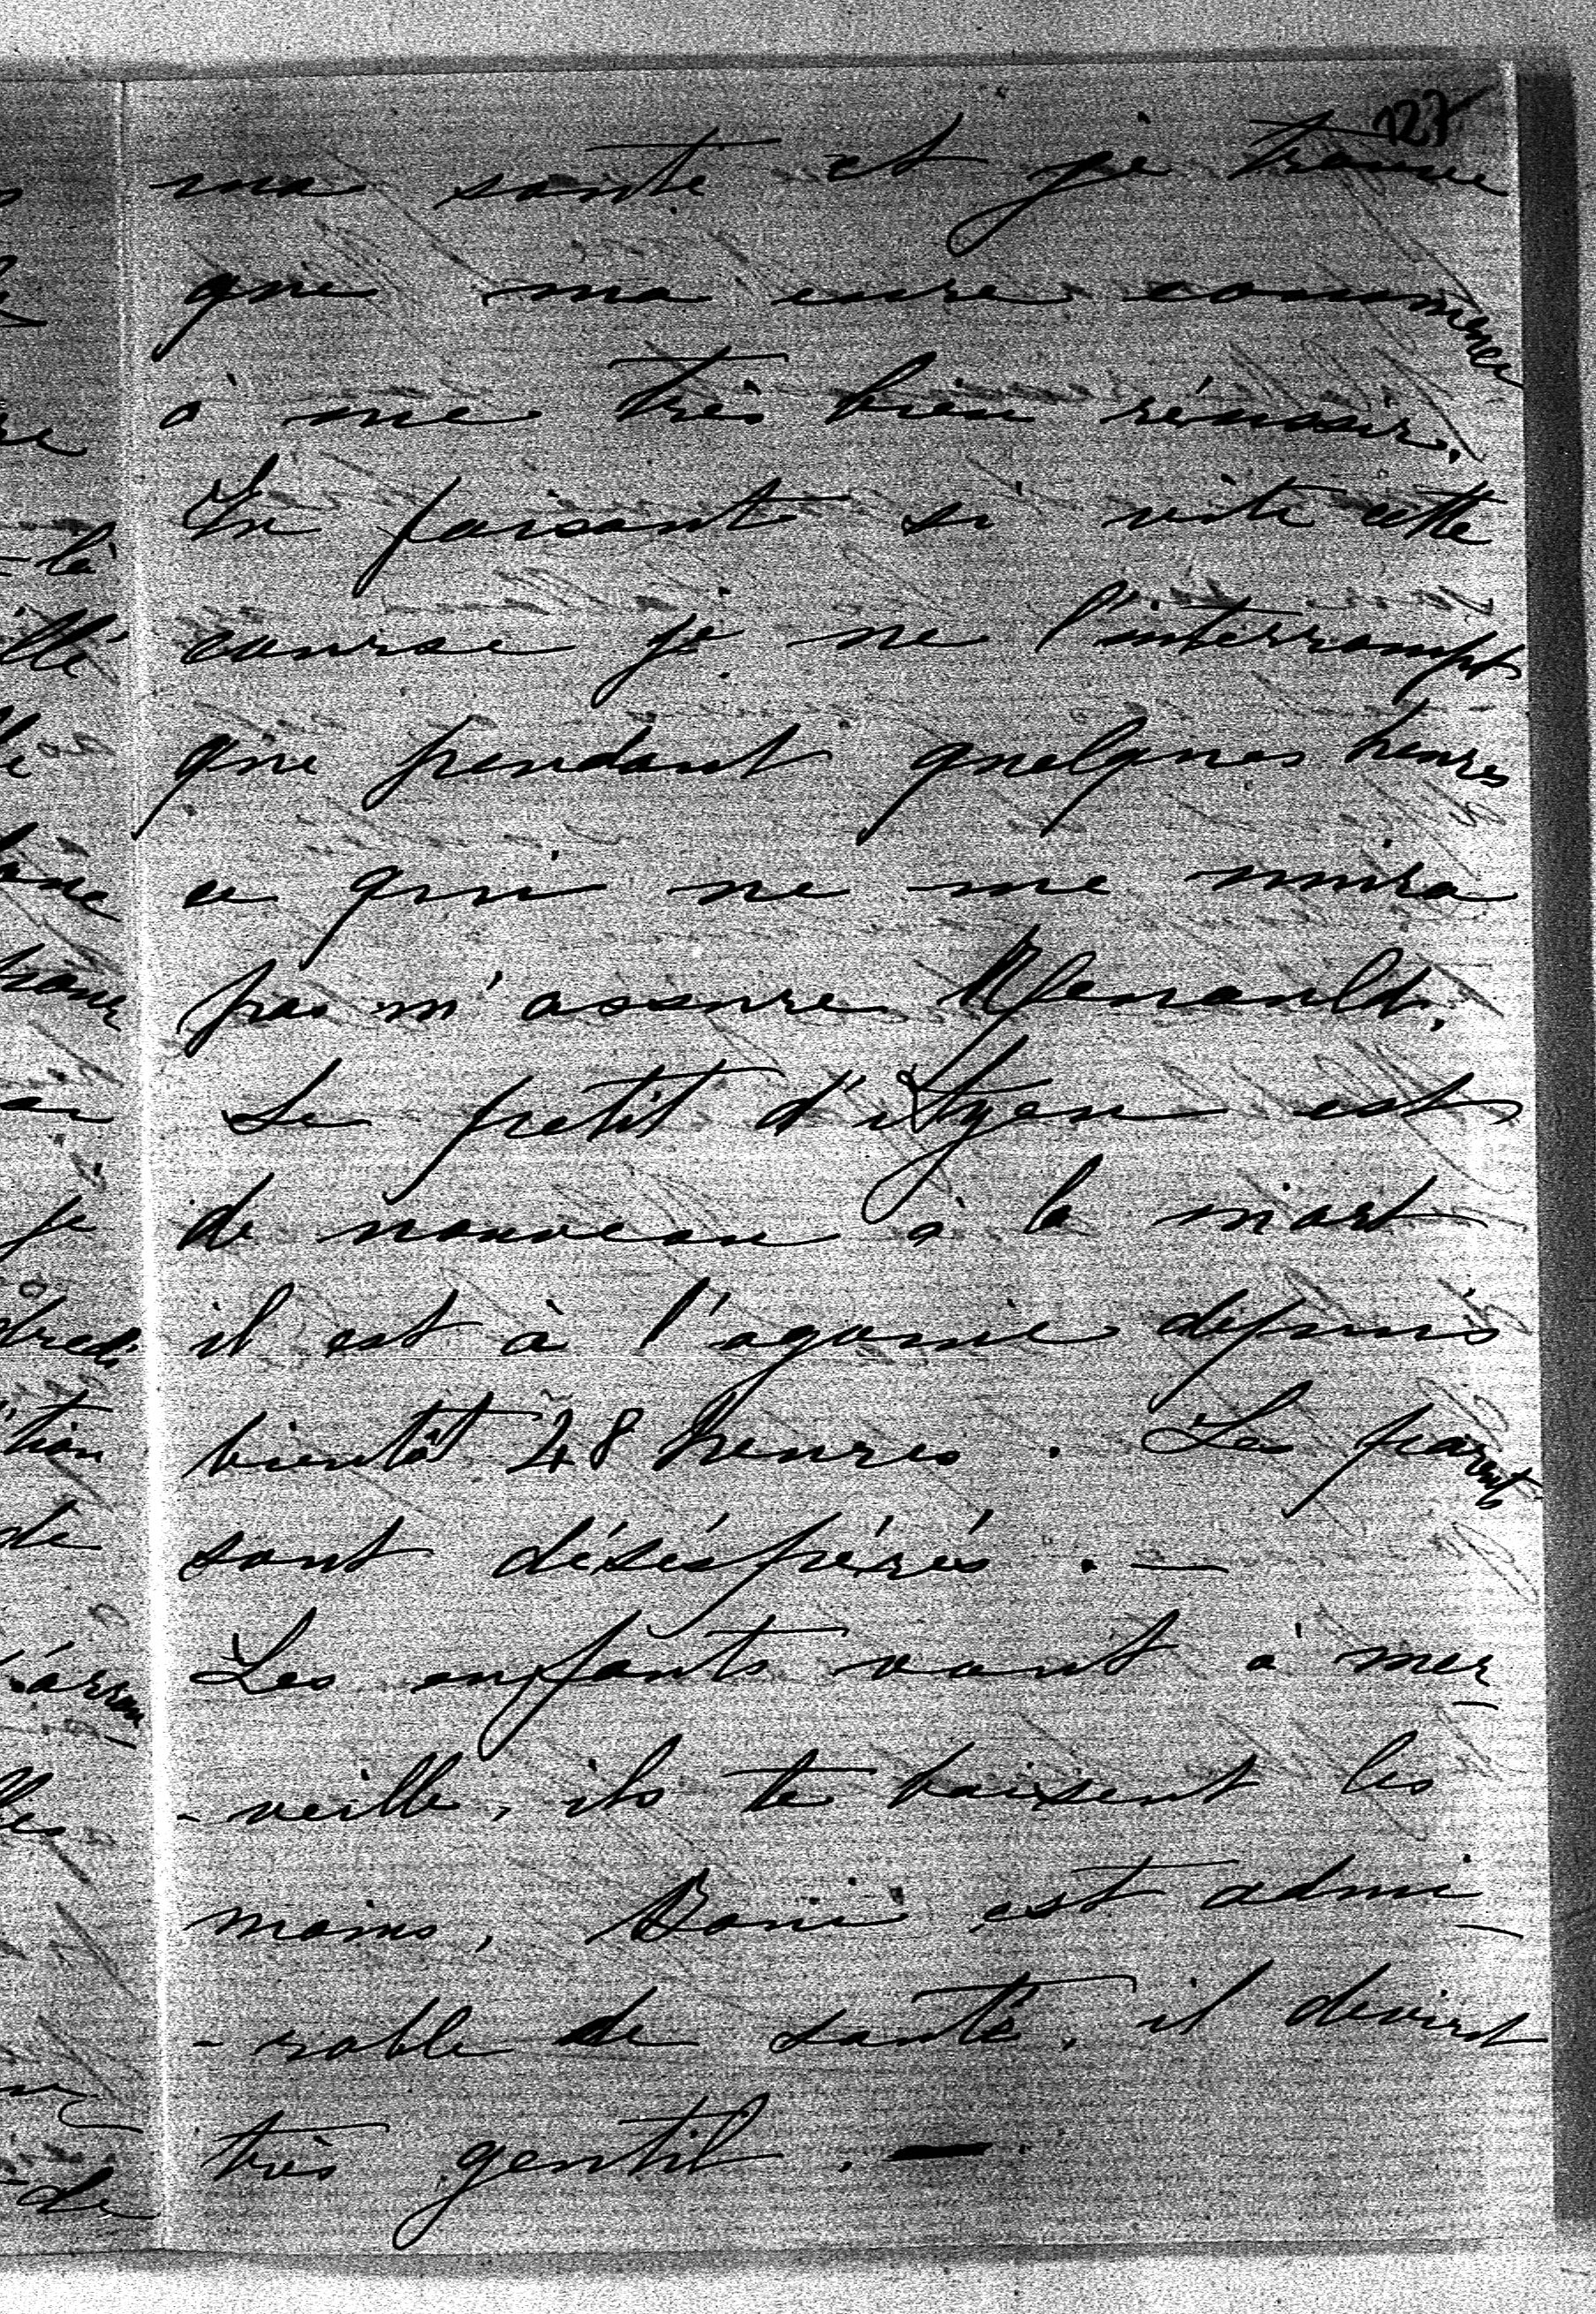 127
ma santé et je trouve
que ma cure commence
à me très bien réussir.
En faisant si vite cette
course je ne l'interrompt
que pendant quelques heures
ce qui ne me nuira
pas m'assure
Le petit d'Ayen est
de nouveau à la mort
il est à l'agonie depuis
bientôt 48 heures. Les parents
sont désespérés. —
Les enfants vont à mer-
-veille, ils te baisent les
mains, Boni est admi-
-rable de santé, il devient
très gentil. —